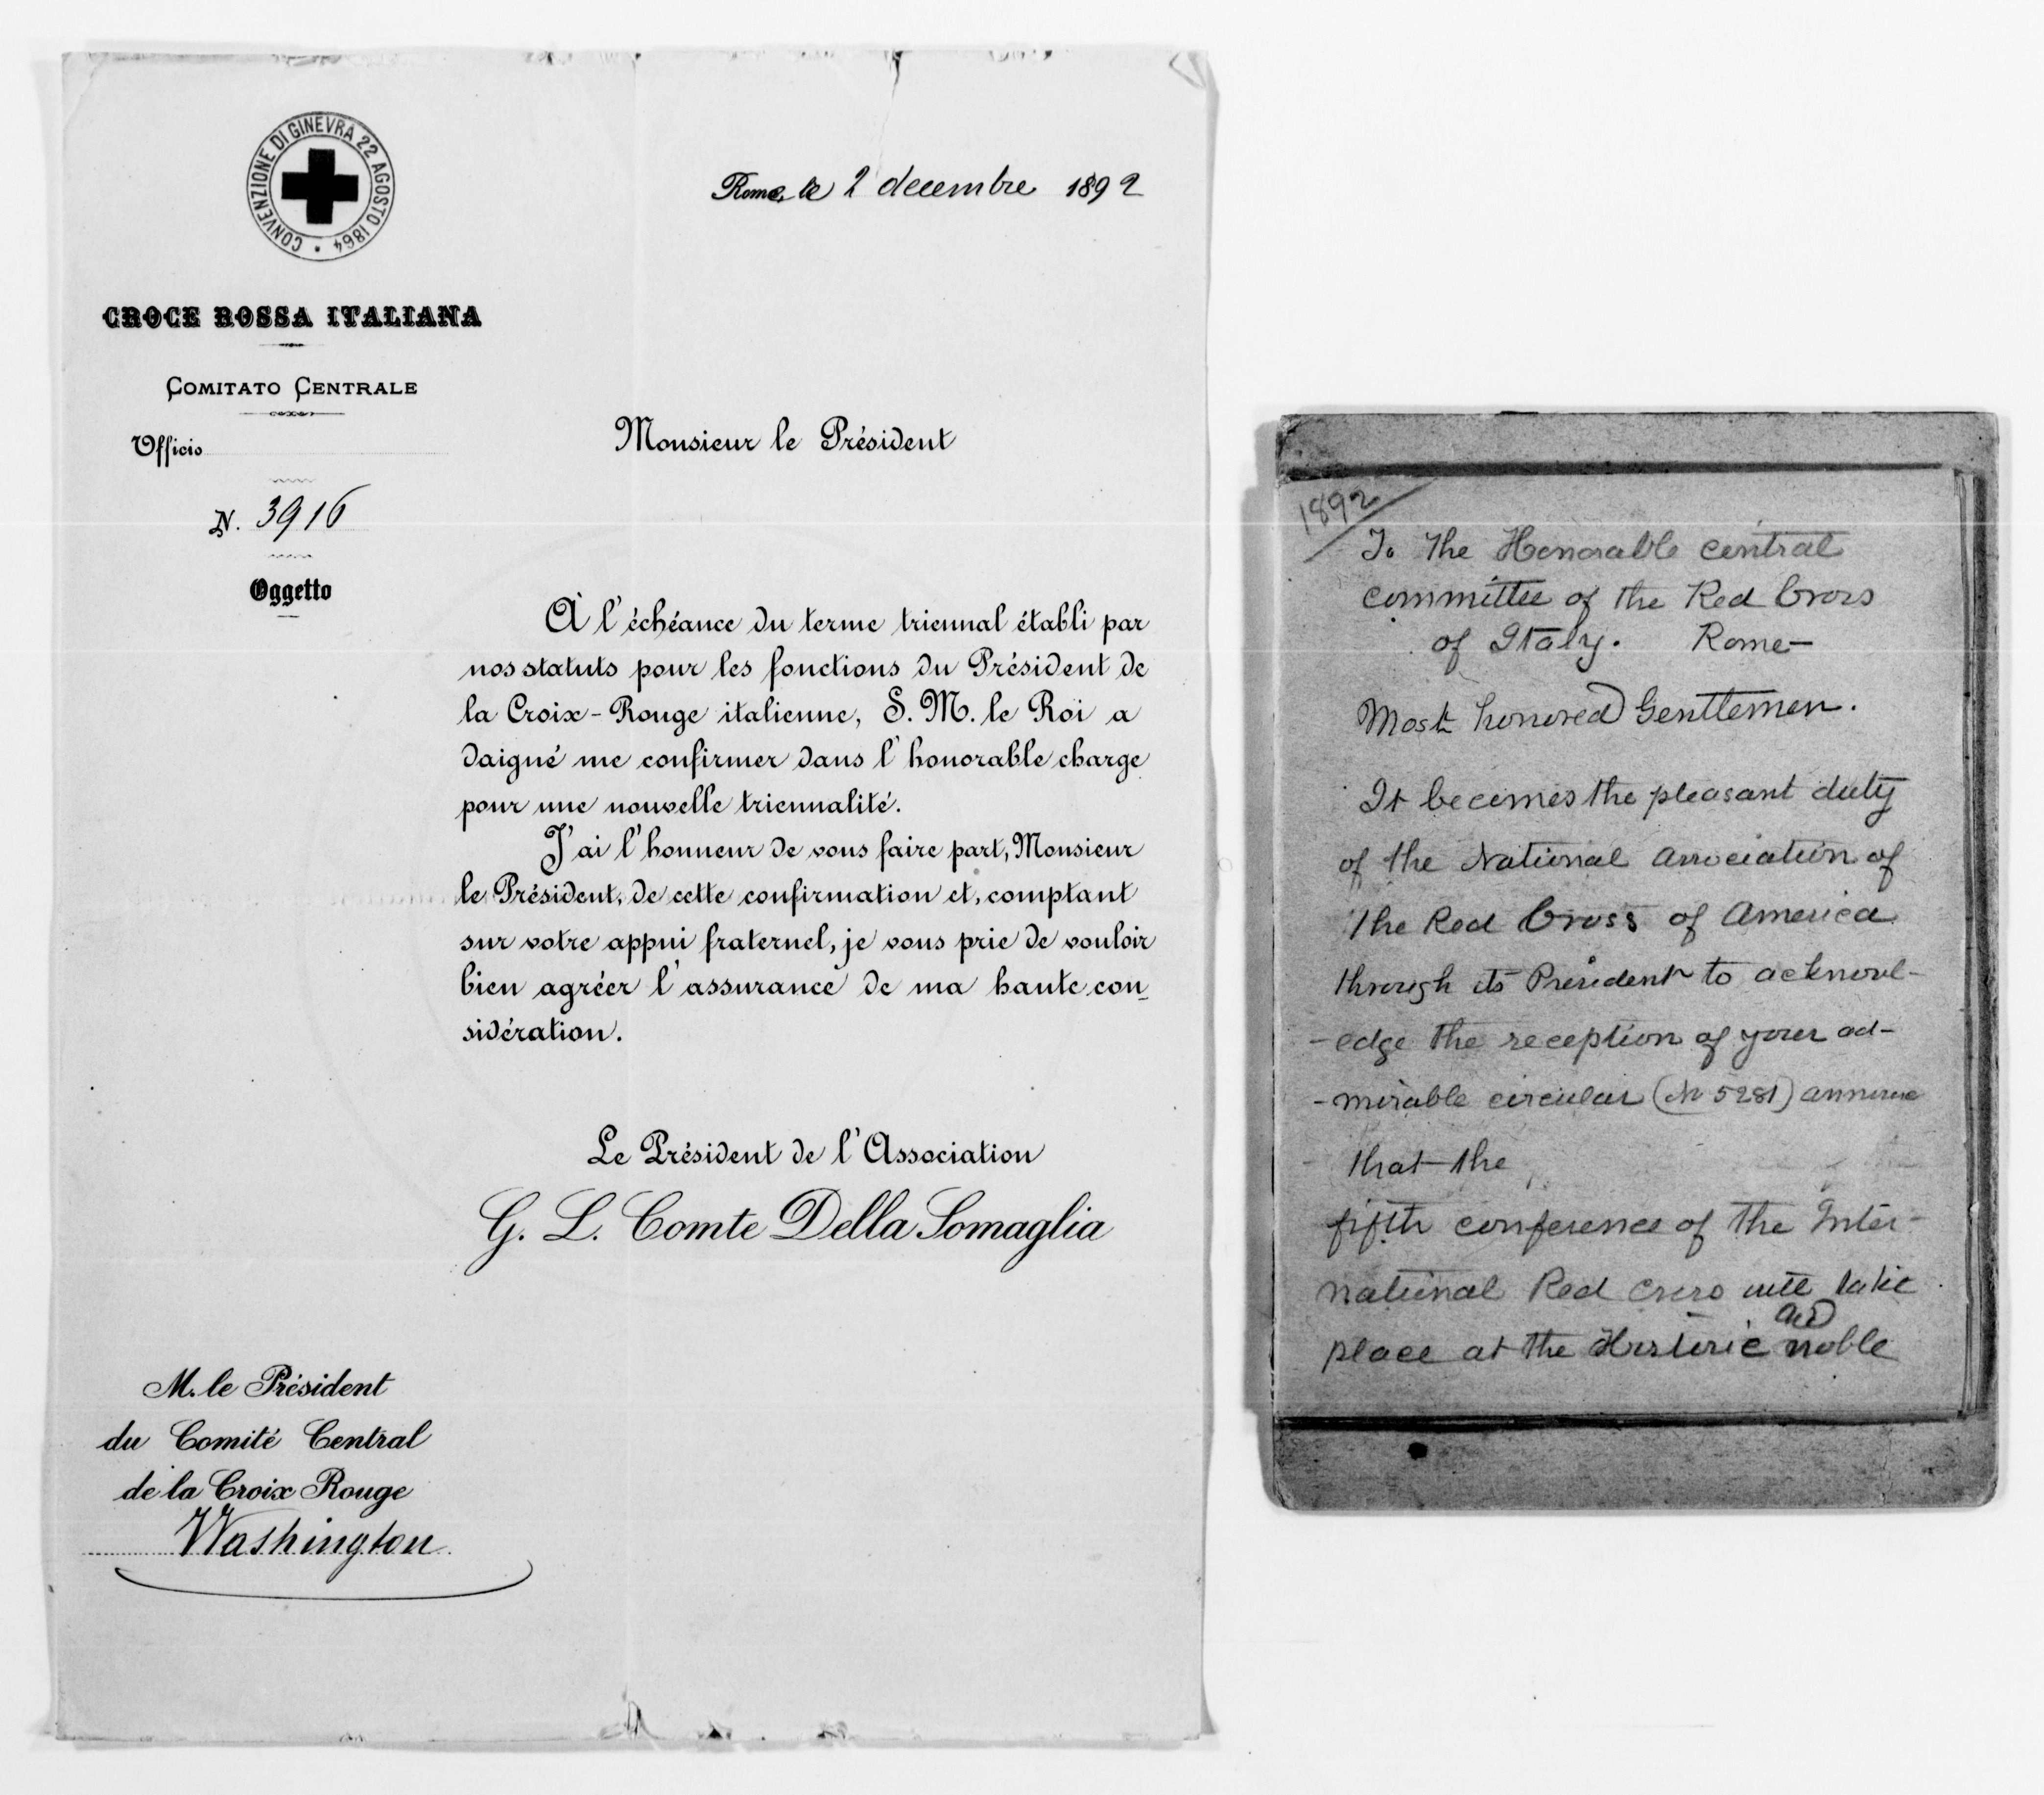 CONVENZIONE DI GINEVRA 22 AGOSTO 1864
CROCE ROSSA ITALIANA
COMITATO CENTRALE
Officio
N. 3916
Oggetto
Rome, le 2 decembre 1892
Monsieur le Président
À l'échéance du terme triennal établi par
nos statuts pour les fonctions du Président de
la Croix-Rouge italienne, S. M. le Roi a
daigné me confirmer dans l'honorable charge
pour une nouvelle triennalité.
J'ai l'honneur de vous faire part, Monsieur
le Président, de cette confirmation et, comptant
sur votre appui fraternel, je vous prie de vouloir
bien agréer l'assurance de ma haute con-
sidération.
Le Président de l'Association
G. L. Comte Della Somaglia
M. le Président
du Comité Central
de la Croix Rouge
Washington
1892
To the Honorable central
committee of the Red Cross
of Italy. Rome-
Most honored Gentlemen.
It becomes the pleasant duty
of the National Association of
the Red Cross of America
through its President to acknowl-
-edge the reception of your ad-
-mirable circular (N 5281)
that the
fifth conference of the Inter-
national Red Cross will take
place at the Historic and noble